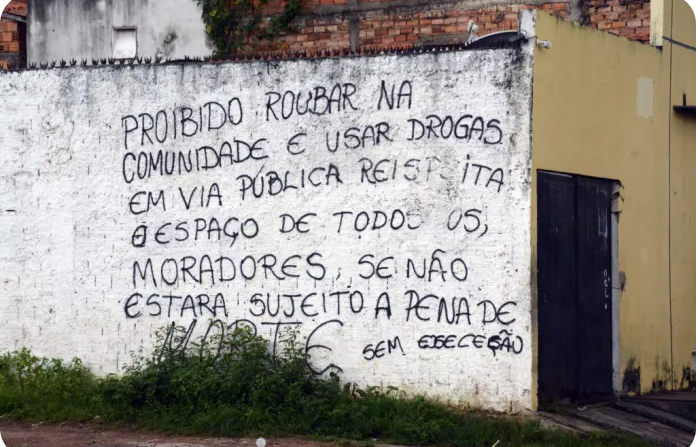 PROIBIDO ROUBAR NA
COMUNIDADE E USAR DROGAS
EM VIA PÚBLICA
O ESPAÇO DE TODOS OS,
MORADORES, SE NÃO
ESTARA SUJEITO A PENA DE
MORTE SEM EXECEÇÃO